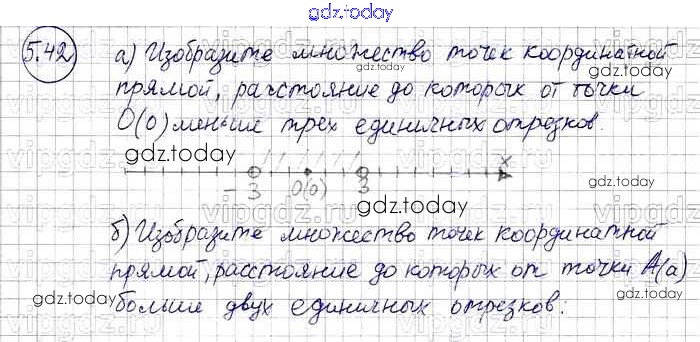 gdz.today
5.42 а) Изобразите множество точек координатной
прямой, расстояние до которых от точки
O(0) меньше трех единичных отрезков.
gdz.today gdz.today
x
-3 O(0) 3
gdz.today
gdz.today
б) Изобразите множество точек координатной
прямой, расстояние до которых от точки A(a)
больше двух единичных отрезков:
gdz.today gdz.today
gdz.today